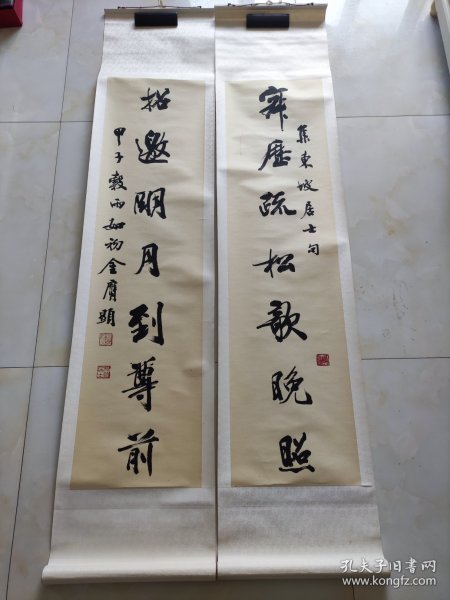 寂歷疏松欹晚照
集東坡居士句
招邀明月到尊前
甲子穀雨如初金膺顯
孔夫子旧书网
www.kongfz.com